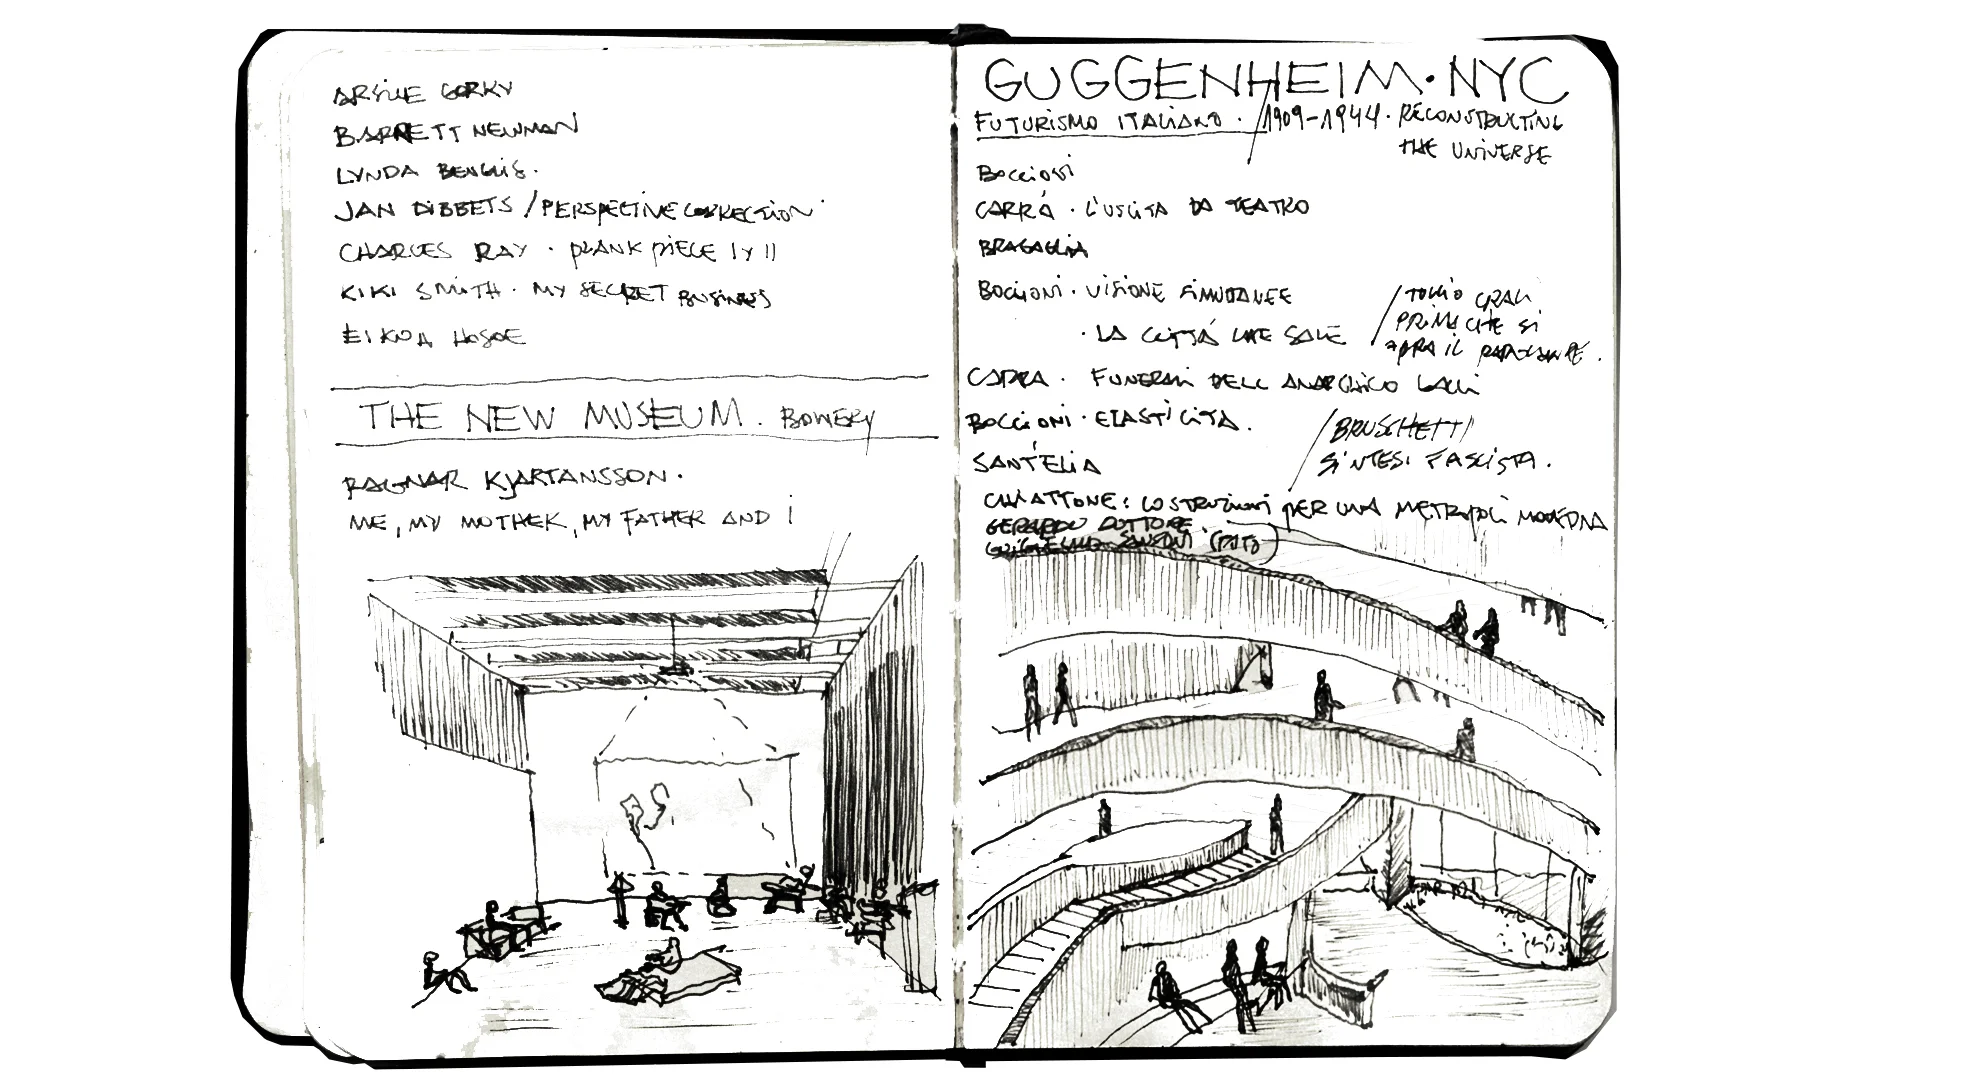 ARSILE GORKY
BARNETT NEWMAN
LYNDA BENGLIS.
JAN DIBBETS / PERSPECTIVE CORRECTION
CHARLES RAY · PLANK PIECE I Y II
KIKI SMITH · MY SECRET BUSINESS
EIKOA HOSOE
THE NEW MUSEUM. BOWERY
RAGNAR KJARTANSSON.
ME, MY MOTHER, MY FATHER AND I
GUGGENHEIM·NYC
FUTURISMO ITALIANO · / 1909-1944 · RECONSTRUCTING
THE UNIVERSE
BOCCIONI
CARRÁ · L'USCITA DA TEATRO
BRAGAGLIA
BOCCIONI · VISIONE SIMULTANEE
/ TULLIO CRALI
PRIMA CHE SI
APRA IL PARACADUTE.
· LA CITTÁ CHE SALE
CARRA · FUNERALI DELL ANARCHICO GALLI
BOCCIONI · ELASTICITA.
/ BRUSCHETTI
SINTESI FASCISTA.
SANT'ELIA
CHIATTONE: COSTRUZIONI PER UNA METROPOLI MODERNA
GERARDO DOTTORE
GUGLIELMO SANSONI (TATO)